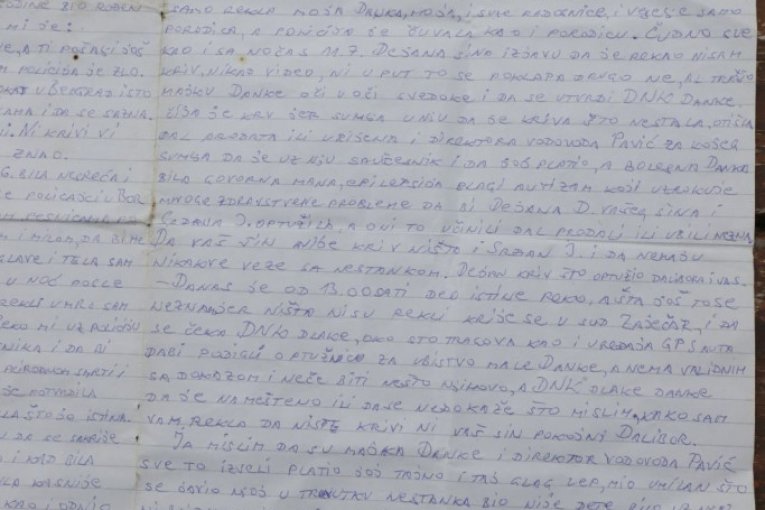 GODINE BIO ROĐEN
MI JE:
E, A TI POČASI JOŠ
POLICIJA JE ZLO.
OKAT U BEOGRAD ISTO
AMA I DA SE SAZNA.
I. NI KRIVI VI
ZNAO.
G. BILA NESREĆA I
E POLICAJCI U BOR
M I MILOM, DA BI ME
GLAVE I TELA SAM
U NOĆ POSLE
REKLI UMRE SAM
ČEKO MI UZ POLICIJU
NIKA I DA BI
PRIRODNOM SMRTI I
JE POTVRDILA
LA ŠTO JO ISTINA.
U DA SE SAKRIJE
O I KAD BILA
LA KASNIJE
KAO I ODNIO
SAMO REKLA MOJA DANKA, MOJA, I SVIE RADOSNICE, I VESELJE SAMO
PORODICA, A POLICIJA JE ČUVALA KAO I PORODICU. ČUDNO SVE
KAO I SA NOĆAS 11.7. DEJANA SINA IZJAVU DA JE REKAO NISAM
KRIV, NIKAO VIDEO, NI U PUT TO SE POKLAPA DRUGO NE, AL TRAŽIO
MAJKU DANKE OČI U OČI SVEDOKE I DA SE UTVRDI DNK DANKE.
ČIJA JE KRV JER SUMNJA U NJU DA JE KRIVA ŠTO NESTALA, OTIŠLA
DAL PRODATA ILI UBIJENA I DIREKTORA VODOVODA PAVIĆ ZA KOJEG
SUMNJA DA JE UZ NJU SAUČESNIK I DA JOJ PLATIO, A BOLESNA DANKA
BILA GOVORNA MANA, EPILEPSIJA BLAGI AUTIZAM KOJI UZROKUJE
MNOGE ZDRAVSTVENE PROBLEME DA BI DEJANA D. VAŠEG SINA I
SRĐANA J. OPTUŽILA, A ONI TO UČINILI DAL PRODALI ILI UBILI NEZNA.
DA VAŠ SIN NIJE KRIV NIŠTO I SRĐAN J. I DA NEMAJU
NIKAKVE VEZE SA NESTANKOM. DEJAN KRIV ŠTO OPTUŽIO DALIBORA I VAS.
– DANAS JE OD 13.00 SATI DEO ISTINE REKO, A ŠTA JOŠ TO SE
NEZNA JER NIŠTA NISU REKLI KRIJE SE U SUD ZAJEČAR, I DA
SE ČEKA DNK DLAKE, OKO STO TRAGOVA KAO I UREĐAJA GPS AUTA
DA BI PODIGLI OPTUŽNICU ZA UBISTVO MALE DANKE, A NEMA VALIDNIH
SA DOKAZOM I NEĆE BITI NEŠTO NJIHOVO, A DNK DLAKE DANKE
DA JE NAMEŠTENO ILI DA SE NEDOKAŽE ŠTO MISLIM, KAKO SAM
VAM, REKLA DA NISTE KRIVI NI VAŠ SIN POKOJNI DALIBOR.
JA MISLIM DA SU MAJKA DANKE I DIREKTOR VODOVODA PAVIĆ
SVE TO IZVELI PLATIO JOJ TAJNO I TAJ GLAG LEP, MIO UMILAN ŠTO
SE JAVIO NJOJ U TRENUTKU NESTANKA BIO NIJE DETE